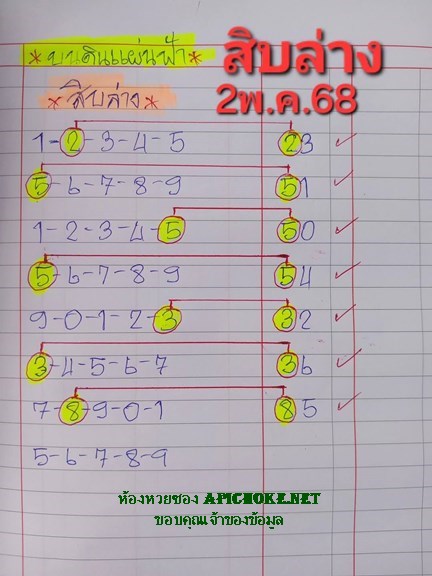 *บนดินแผ่นฟ้า* สิบล่าง
*สิบล่าง* 2พ.ค.68
1-2-3-4-5 23 ✓
5-6-7-8-9 51 ✓
1-2-3-4-5 50 ✓
5-6-7-8-9 54 ✓
9-0-1-2-3 32 ✓
3-4-5-6-7 36 ✓
7-8-9-0-1 85 ✓
5-6-7-8-9
ห้องหวยซอง APICHOKE.NET
ขอบคุณเจ้าของข้อมูล